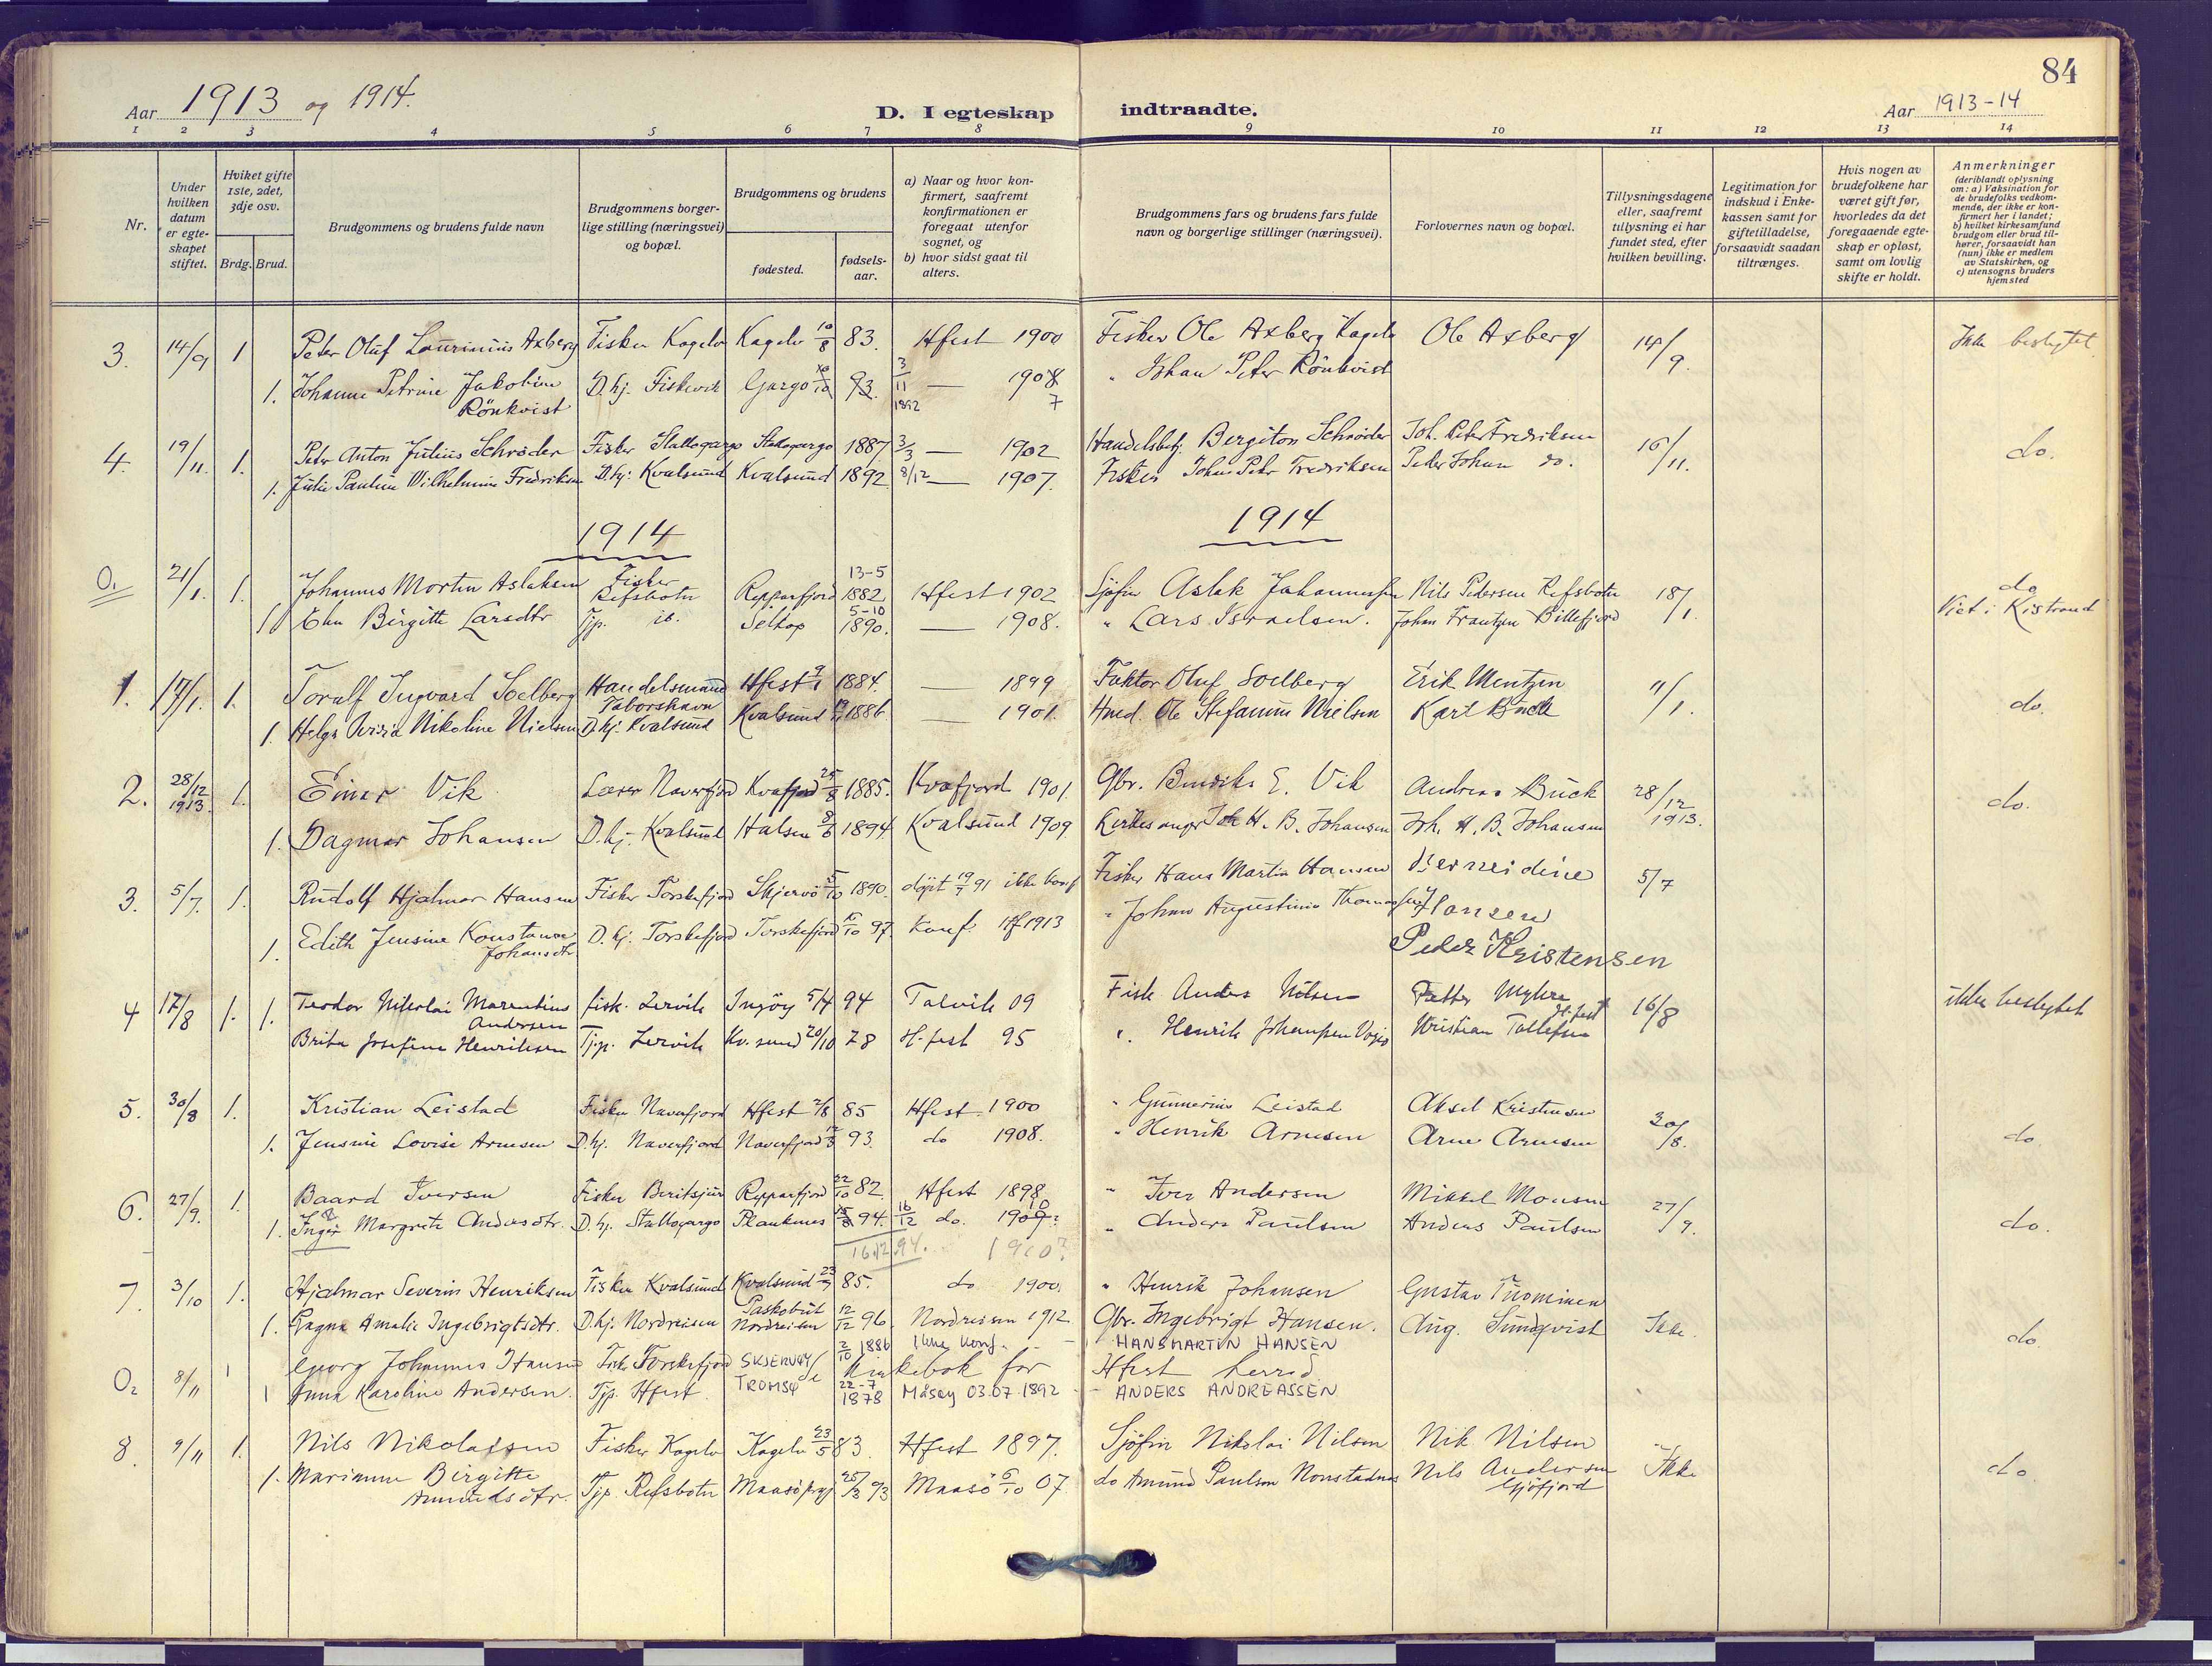 84
Aar 1913 og 1914.
D. I egteskap indtraadte.
Aar 1913-14
1 2 3 4 5 6 7 8 9 10 11 12 13 14
Nr.
Under hvilken datum er egteskapet stiftet.
Hviket gifte 1ste, 2det, 3dje osv.
Brdg. Brud.
Brudgommens og brudens fulde navn
Brudgommens borgerlige stilling (næringsvei) og bopæl.
Brudgommens og brudens
fødested.
fødselsaar.
a) Naar og hvor konfirmert, saafremt konfirmationen er foregaat utenfor sognet, og
b) hvor sidst gaat til alters.
Brudgommens fars og brudens fars fulde navn og borgerlige stillinger (næringsvei).
Forlovernes navn og bopæl.
Tillysningsdagene eller, saafremt tillysning ei har fundet sted, efter hvilken bevilling.
Legitimation for indskud i Enkekassen samt for giftetilladelse, forsaavidt saadan tiltrænges.
Hvis nogen av brudefolkene har været gift før, hvorledes da det foregaaende egteskap er opløst, samt om lovlig skifte er holdt.
Anmerkninger (deriblandt oplysning om: a) Vaksination for de brudefolks vedkommende, der ikke er konfirmert her i landet; b) hvilket kirkesamfund brudgom eller brud tilhører, forsaavidt han (hun) ikke er medlem av Statskirken, og c) utensogns bruders hjemsted
3. 14/9 1 Peter Oluf Laurinius Axberg Fisker Kagelv Kagelv 10/8 83. Hfest 1900 Fisker Ole Axberg Kagelv Ole Axberg 14/9. Ikke beslegtet
1. Johanne Petrine Jakobine Rönkvist D. hj. Fiskevik Gargo 93. 3/11 1892 — 1908 7 " Johan Peter Rönkvist
4. 19/11. 1. Peter Anton Julius Schröder Fisker Stallogargo Stallogargo 1887 3/3 — 1902 Handelsbetj. Bergiton Schrøder Joh. Peter Fredriksen 16/11. do.
1. Julie Pauline Wilhelmine Fredriksen D. hj. Kvalsund Kvalsund 1892 8/12 — 1907. Fisker Johan Peter Fredriksen Peder Johan do.
1914 1914
0. 21/1. 1. Johannes Morten Aslaksen Fisker Refsbotn Repparfjord 13-5 1882 Hfest 1902 Sjøfin Aslak Johannessen Nils Pedersen Refsbotn 18/1 do
1 Elen Birgitte Larsdtr Tjp. ib. 5-10 1890. — 1908. " Lars Israelsen. Johan Frantzen Billefjord Viet i Kistrand
1. 17/1. 1. Toralf Ingvard Soelberg Handelsmand Hfest 9/1 1884. — 1899 Faktor Oluf Soelberg Erik Mentzen 11/1. do.
1. Helga Nikoline Nielsen D. hj. Kvalsund Kvalsund 1886 — 1901. Hmd. Ole Stefanus Nielsen Karl Buck
2. 28/12 1913. 1. Einar Vik Lærer Naverfjord Kvæfjord 25/8 1885. Kvæfjord 1901. Gbr. Bendiks E. Vik Andreas Buck 28/12 1913. do.
1. Dagmar Johansen D. hj. Kvalsund Halsen 8/6 1894 Kvalsund 1909. Kirkesanger Joh. H. B. Johansen Joh. H. B. Johansen
3. 5/7. 1. Rudolf Hjalmar Hansen Fisker Torskefjord Skjervö 5/10 1890. döpt 19/7 91 ikke konf Fisker Hans Martin Hansen Berneidine Hansen 5/7
1. Edith Jensine Konstanse Johansdtr. D. hj. Torskefjord Torskefjord 97. Konf. Hf 1913 " Johan Augustinus Thomassen Peder Kristensen
4 17/8 1. 1. Teodor Nikolai Marentius Andersen fisk. Lervik Ingöy 5/4 94 Talvik 09 Fisk Anders Nilsen Petter Myhre H.fest 16/8 ikke beslegtet
Brita Josefine Henriksen Tjp. Lervik Kv.sund 20/10 78 H.fest 95 " Henrik Johansen Kristian Tollefsen
5. 30/8 1. Kristian Leistad Fisker Naverfjord Hfest 2/8 85 Hfest 1900 " Gunnerius Leistad Aksel Kristensen 30/8. do
1. Jensine Lovise Arnesen D. hj. Naverfjord Naverfjord 93. do 1908. " Henrik Arnesen Arne Arnesen
6. 27/9. 1. Baard Iversen Fisker Beritsjur Repparfjord 22/10 82. Hfest 1898 " Iver Andersen Mikkel Monsen 27/9. do.
1. Inger Margrete Andersdtr. D. hj. Stallogargo Plankenes 94. 16/12 do. 1909? 10 " Anders Paulsen Anders Paulsen
16.12.94. 1910?
7. 3/10 1. Hjalmar Severin Henriksen Fisker Kvalsund Kvalsund 85. do 1900. " Henrik Johansen Gustav Tuominen
1. Ragna Amalie Ingebrigtsdtr. D. hj. Nordreisen Paskobut Nordreisen 12/12 96. Nordreisen 1912. Gbr. Ingebrigt Hansen. Aug. Sundqvist Ikke. do
02 8/11 1 Georg Johannes Hansen Fisk. Torskefjord SKJERVØY 2/10 1886 Ikke konf. HANS MARTIN HANSEN
Se Kirkebok for Hfest herred
1 Anna Karoline Andersen. Tjp. Hfest. TROMSØ 22-7 1878 Måsøy 03.07.1892 ANDERS ANDREASSEN
8. 9/11 1. Nils Nikolaisen Fisker Kagelv Kagelv 23/5 83. Hfest 1897. Sjöfin Nikolai Nilsen Nik Nilsen Ikke do.
1. Marianne Birgitte Amundsdtr. Tjp. Refsbotn 25/2 93 Maasö 6/10 07. do Amund Paulsen Nils Andersen